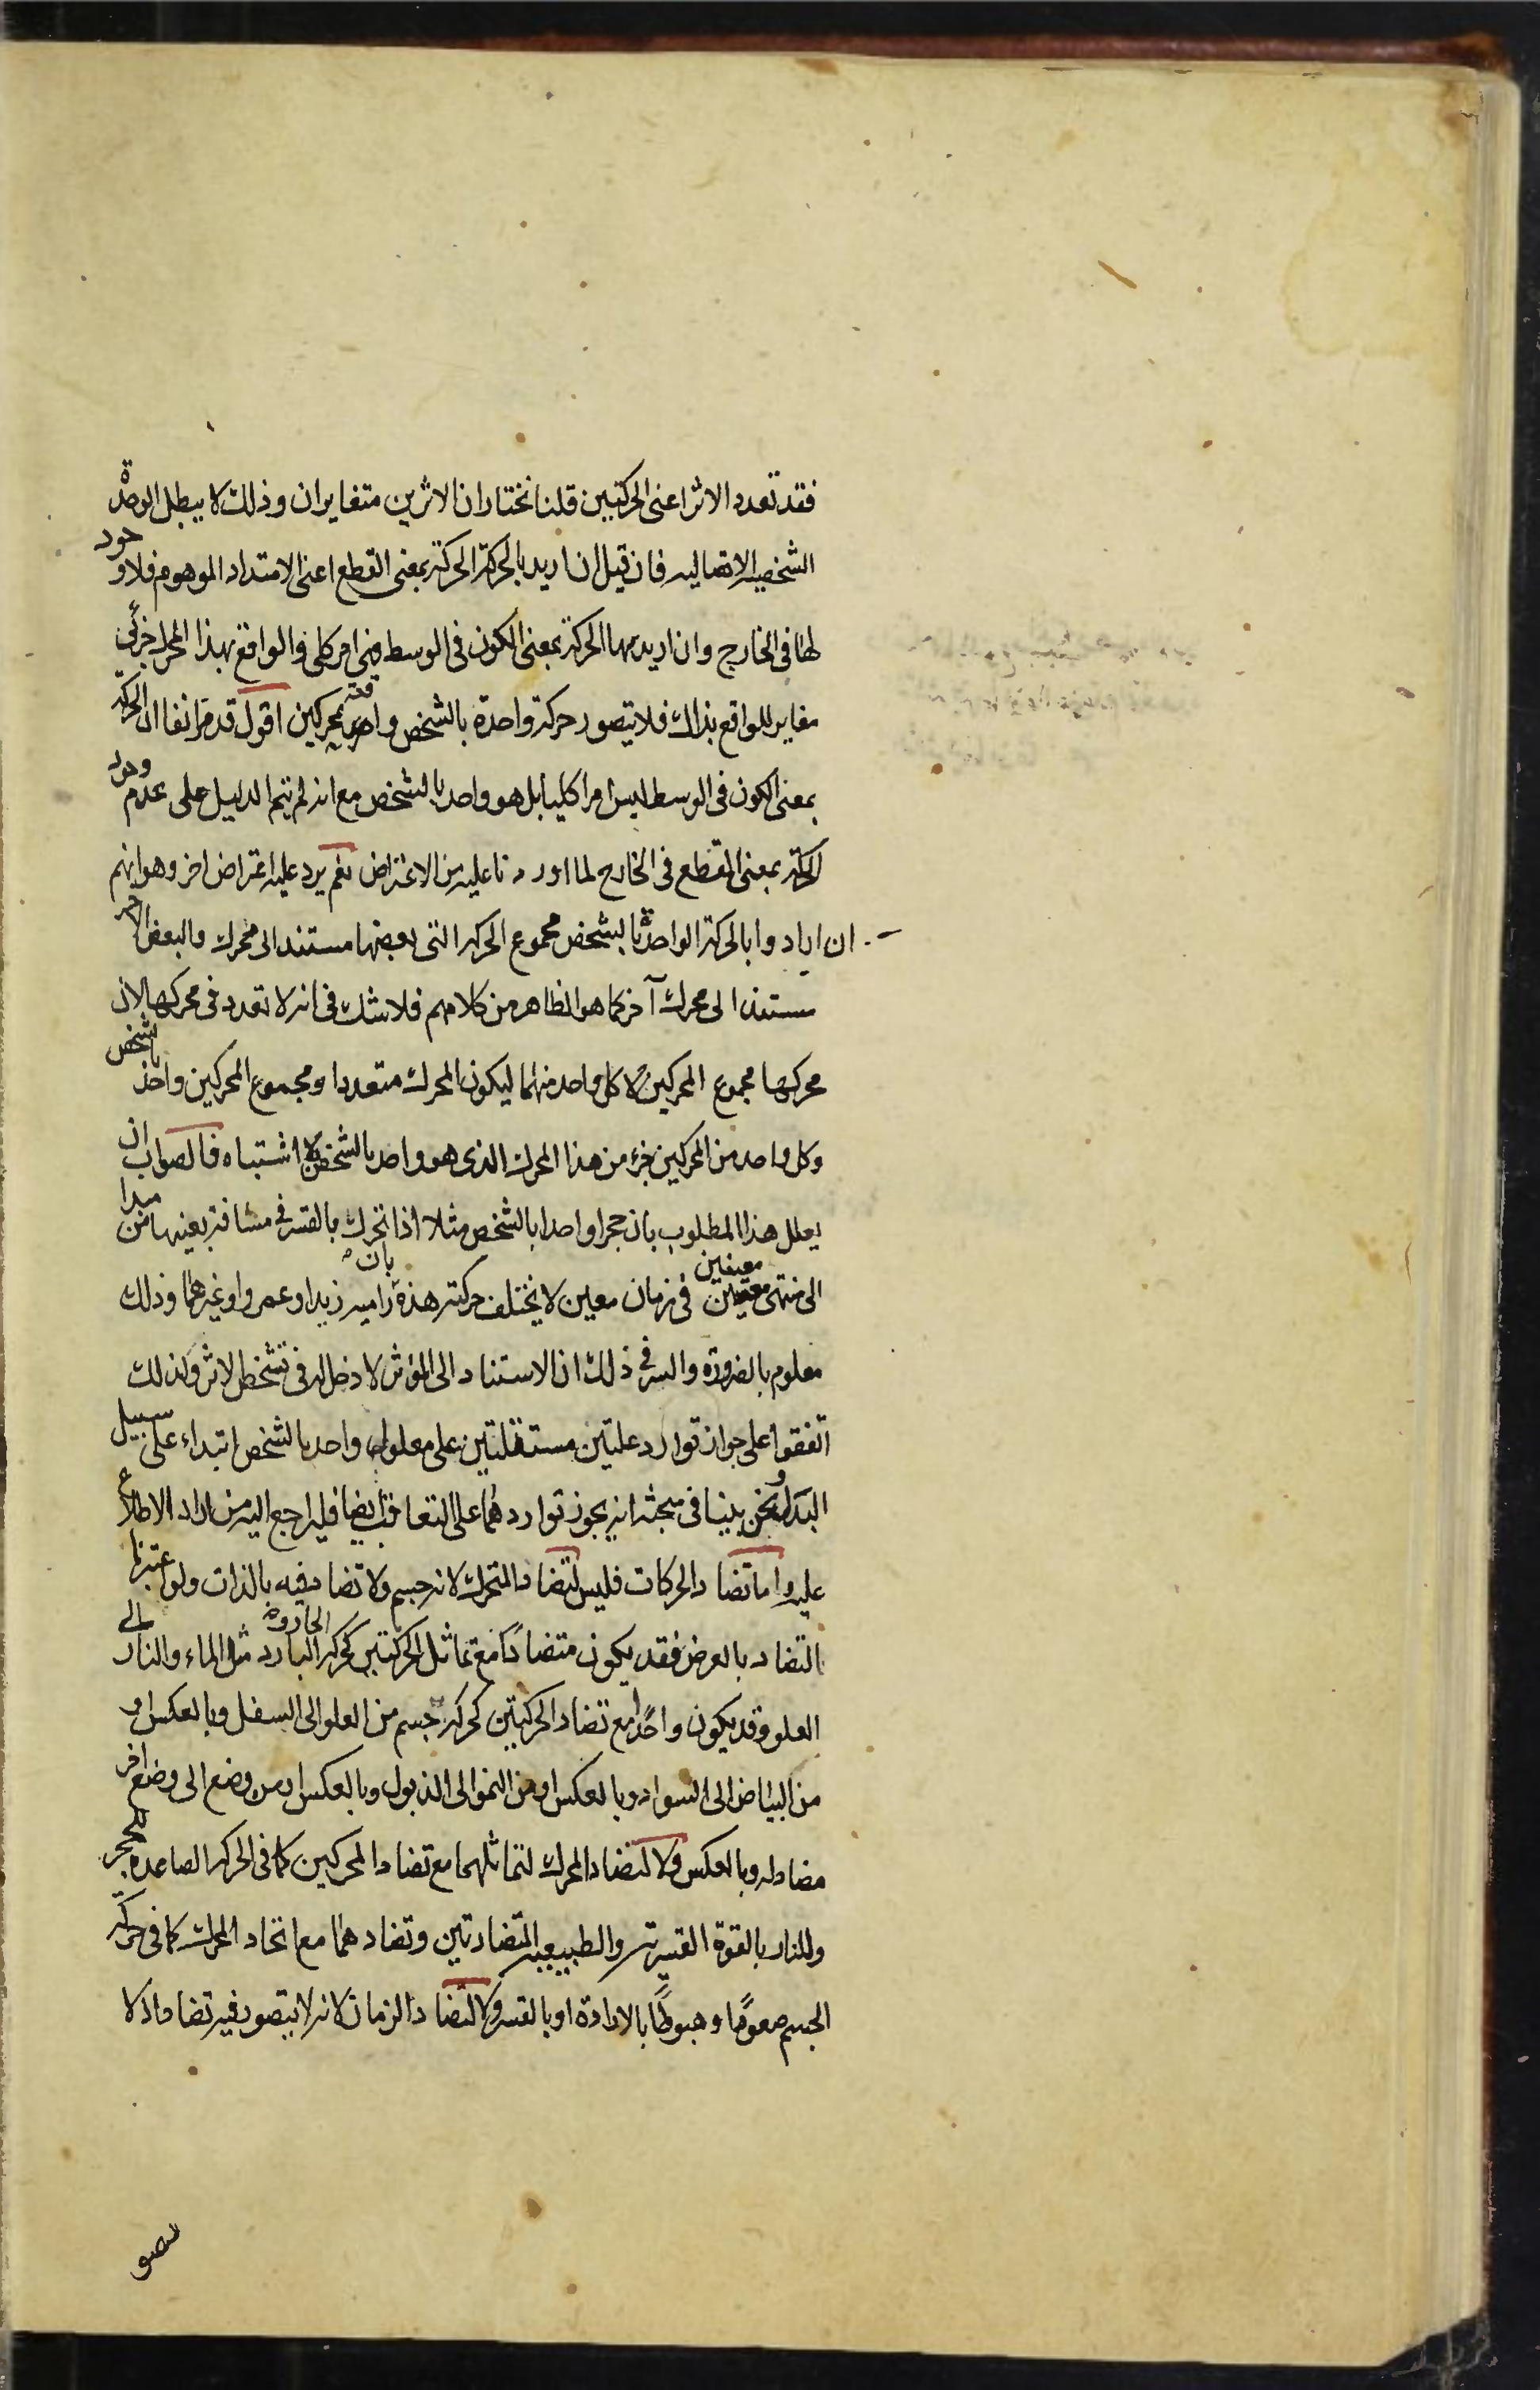 فقد تعدد الاثر اعنى الحركتين قلنا نختار ان الاثرين متغايران وذلك لا يبطل الوحدة
الشخصية الاتصاليه فان قيل ان اريد بالحركة الحركة بمعنى القطع اعنى الامتداد الموهوم فلا وجود
لها فى الخارج وان اريد بها الحركة بمعنى الكون فى الوسط فهى امر كلى والواقع بهذا المحرك جزئى
مغاير للواقع بذاك فلا يتصور حركة واحدة بالشخص واقعة بمحركين اقول قد مر انفا ان الحركة
بمعنى الكون فى الوسط ليس امرا كليا بل هو واحد بالشخص مع انه لم يتم الدليل على عدم وجود
الحركة بمعنى القطع فى الخارج لما اوردنا عليه من الاعتراض نعم يرد عليه اعتراض اخر وهو انهم
ان ارادوا بالحركة الواحدة بالشخص مجموع الحركه التى بعضها مستند الى محرك والبعض الاخر
مستند الى محرك آخر كما هو الظاهر من كلامهم فلا شك فى انه لا تعدد فى محركها لان
محركها مجموع المحركين لا كل واحد منهما ليكون المحرك متعددا ومجموع المحركين واحد بالشخص
وكل واحد من المحركين جزء من هذا المحرك الذى هو واحد بالشخص بلا اشتباه فالصواب ان
يعلل هذا المطلوب بان حجرا واحدا بالشخص مثلا اذا تحرك بالقسر فى مسافة بعينها من مبدا
الى منتهى معينين فى زمان معين لا يختلف حركته هذه بان راميه زيد او عمرو او غيرهما وذلك
معلوم بالضرورة والسر فى ذلك ان الاستناد الى المؤثر لا دخل له فى تشخص الاثر ولذلك
اتفقوا على جواز توارد علتين مستقلتين على معلول واحد بالشخص ابتداء على سبيل
البدل ونحن بينا فى مبحثه انه يجوز تواردهما على التعاقب ايضا فليراجع اليه من اراد الاطلاع
عليه واما تضاد الحركات فليس لتضاد المتحرك لانه جسم ولا تضاد فيه بالذات ولو اعتبرنا
التضاد بالعرض فقد يكون متضادا مع تماثل الحركتين كحركه الحار والبارد مثل الماء والنار الى
العلو وقد يكون واحدا مع تضاد الحركتين كحركه جسم من العلو الى السفل وبالعكس او
من البياض الى السواد وبالعكس او من النمو الى الذبول وبالعكس او من وضع الى وضع اخر
مضاد له وبالعكس ولا لتضاد المحرك لتماثلهما مع تضاد المحركين كما فى الحركه الصاعده للحجر
وللنار بالقوة القسرية والطبيعية المتضادتين وتضادهما مع اتحاد المحرك كما فى حركة
الجسم صعودا وهبوطا بالارادة او بالقسر ولا لتضاد الزمان لانه لا يتصور فيه تضاد اذ لا